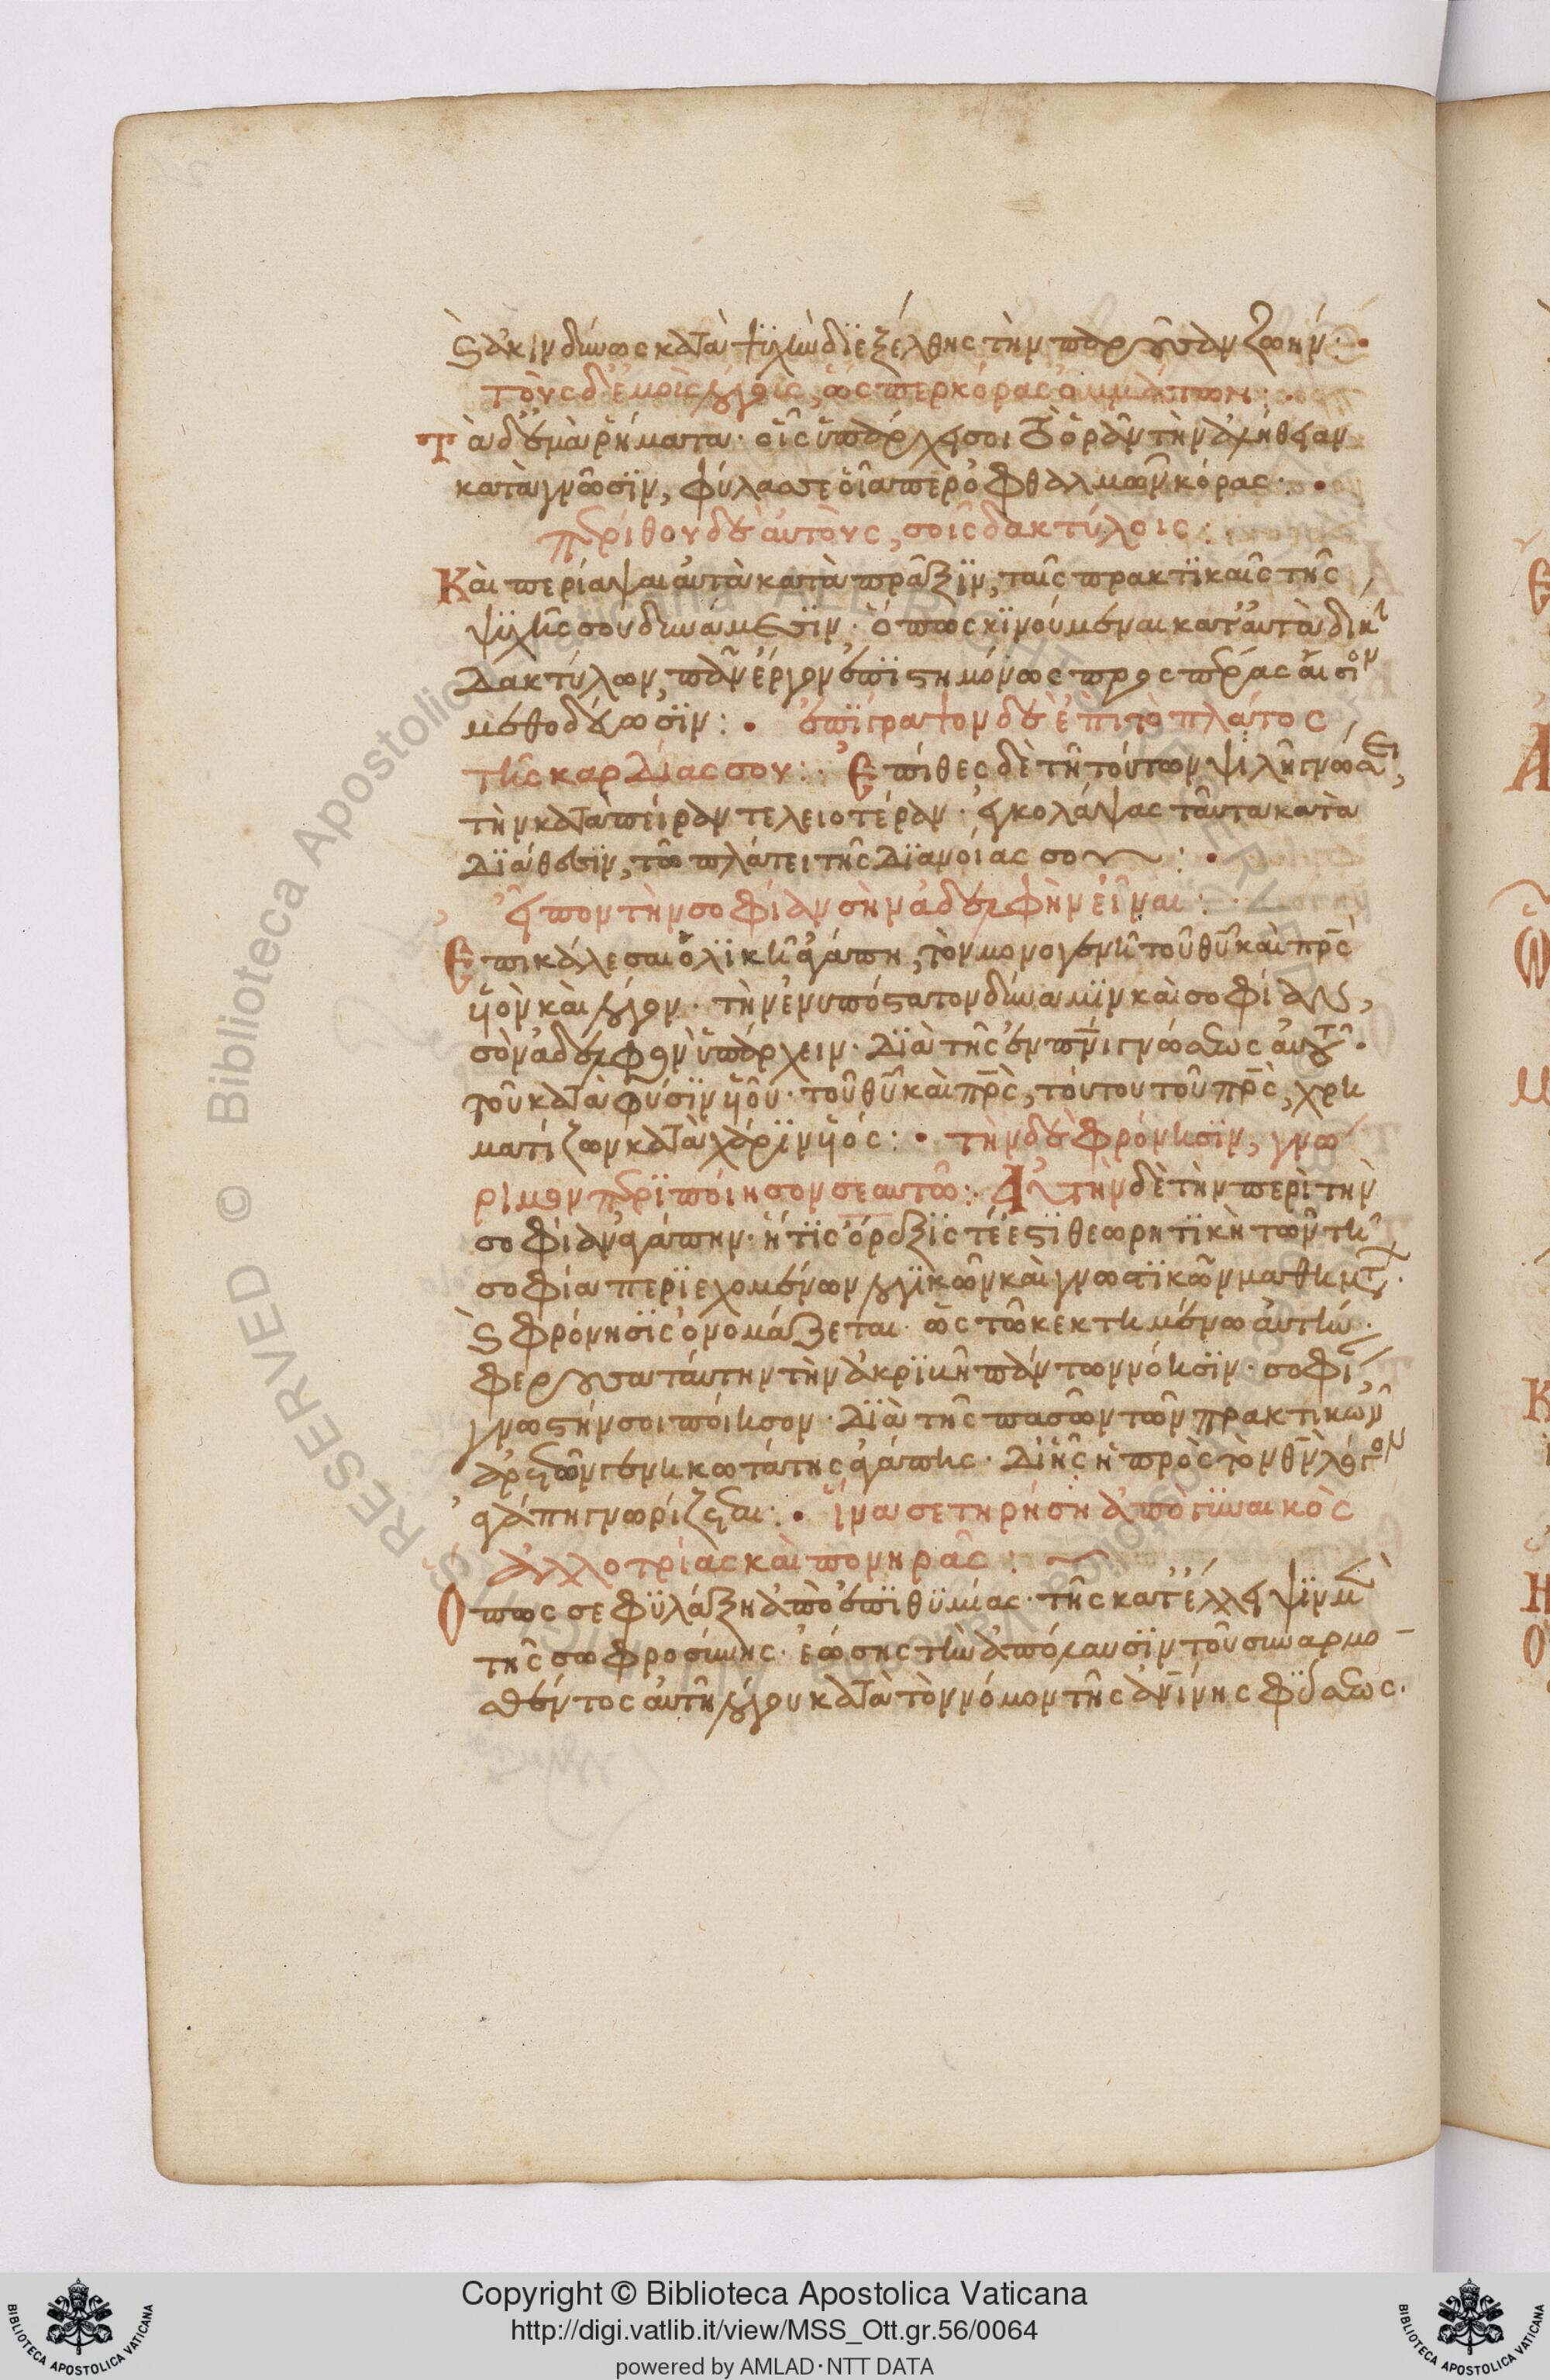 καὶ ἀκινδύνως κατὰ ψυχὴν διεξέλθης τὴν παροῦσαν ζωήν:
τοὺς δ' ἐμοὺς λόγους, ὥσπερ κόρας ὀμμάτων:
Τὰ δ' ἐμὰ ῥήματα· οἷς ὑπάρχει σοι τὸ ὁρᾶν τὴν ἀλήθειαν
κατὰ γνῶσιν, φύλασσε οἷάπερ ὀφθαλμῶν κόρας:
περίθου δὲ αὐτοὺς, σοῖς δακτύλοις:
Καὶ περίαψαι αὐτὰ κατὰ πρᾶξϊν, ταῖς πρακτϊκαῖς τῆς
ψϋχῆς σου δυνάμεσϊν· ὅπως κϊνούμεναι κατ' αὐτὰ δίκην
δακτύλων, πᾶν ἔργον ἐπϊστημόνως πρὸς πέρας αἴσιον
μεθοδεύωσϊν: ἐπϊγραψον δὲ ἐπὶ τὸ πλάτος
τῆς καρδίας σου: Ἐπίθες δὲ τῆ τούτων ψιλῆ γνώσει,
τὴν κατὰ πεῖραν τελειοτέραν· ἐγκολάψας ταῦτα κατὰ
διάθεσϊν, τῶ πλάτει τῆς δϊανοίας σου:
εἶπον τὴν σοφίαν σὴν ἀδελφὴν εἶναι:
Ἐπικάλεσαι ὁλϊκῆ ἀγάπη, τὸν μονογενῆ τοῦ θυ καὶ πρς
υἱὸν καὶ λόγον· τὴν ἐνυπόστατον δύναμϊν καὶ σοφίαν,
σὸν ἀδελφὸν ὑπάρχειν· δϊὰ τῆς ἐν πνι γνώσεως αὐτοῦ·
τοῦ κατὰ φύσϊν υἱοῦ· τοῦ θυ καὶ πρς, τούτου τοῦ πρς, χρη
ματίζων κατὰ χάρϊν υἱός: τὴν δὲ φρόνησϊν, γνώ
ριμον περϊποίησον σεαυτῶ: Αὐτὴν δὲ τὴν περὶ τὴν
σοφίαν ἀγάπην· ἥτϊς ὄρεξϊς τέ ἐστϊ θεωρητϊκὴ τῶν τῆ
σοφία περϊεχομένων λογϊκῶν καὶ γνωστϊκῶν μαθημάτων·
καὶ φρόνησϊς ὀνομάζεται· ὡς τῶ κεκτημένω αὐτὴν·
φέρουσα ταύτην τὴν ἀκριβῆ πάντων νόησϊν· σοφία
γνωστήν σοι ποίησον· δϊὰ τῆς πασῶν τῶν πρακτικῶν
ἀρετῶν γενικωτάτης ἀγάπης· δι' ἧς ἡ πρὸς τὸν θν λόγον
ἀγάπη γνωρίζεται: ἵνα σε τηρήση ἀπὸ γϋναικὸς
ἀλλοτρίας καὶ πονηρᾶς:
Ὅπως σε φϋλάξη ἀπὸ ἐπϊθϋμίας· τῆς κατ' ἔλλειψϊν μὲν
τῆς σωφροσύνης· ἐώσης τὴν ἀπόλαυσϊν τοῦ συναρμο
σθέντος αὐτῆ λόγου κατὰ τὸν νόμον τῆς ἀνίνης φϋσεως·
Copyright © Biblioteca Apostolica Vaticana
http://digi.vatlib.it/view/MSS_Ott.gr.56/0064
powered by AMLAD·NTT DATA